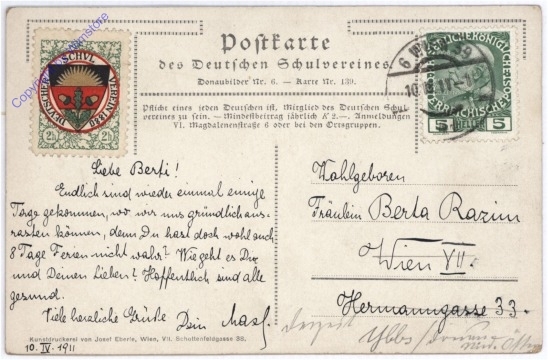 Postkarte
des Deutschen Schulvereines
Donaubilder Nr. 6. — Karte Nr. 139.
Pflicht eines jeden Deutschen ist, Mitglied des Deutschen Schul-
vereines zu sein. — Mindestbeitrag jährlich K 2.—. Anmeldungen
VI. Magdalenenstraße 6 oder bei den Ortsgruppen.
DEUTSCHER SCHUL VEREIN 1880
2h 2h
6 WIEN 59
5 HELLER 5
Liebe Berti!
Endlich sind wieder einmal einige
Tage gekommen, wo wir uns gründlich aus-
rasten können, denn Du hast doch wohl auch
8 Tage Ferien nicht wahr? Wie geht es Dir
und Deinen Lieben? Hoffentlich sind alle
gesund.
Viele herzliche Grüße
Dein
Wohlgeboren
Fräulein Berta Razim
Wien VII.
Hermanngasse 33.
Ybbs
Kunstdruckerei von Josef Eberle, Wien, VII. Schottenfeldgasse 38.
10. IV. 1911